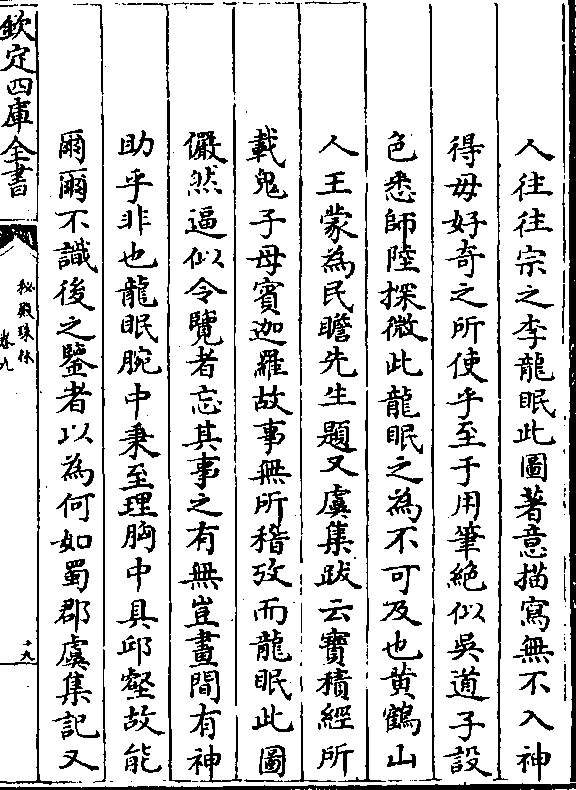 人往往宗之李龍眠此圖著意描寫無不入神
得毋好奇之所使乎至于用筆絶似吳道子設
色悉師陸探微此龍眠之為不可及也黄鶴山
人王蒙為民瞻先生題又虞集跋云寶積經所
載鬼子母賓迦羅故事無所稽攷而龍眠此圖
儼然逼似令覽者忘其事之有無豈畫間有神
助乎非也龍眠腕中秉至理胸中具邱壑故能
爾爾不識後之鑒者以為何如蜀郡虞集記又
欽定四庫全書
秘殿珠林
卷九
十九